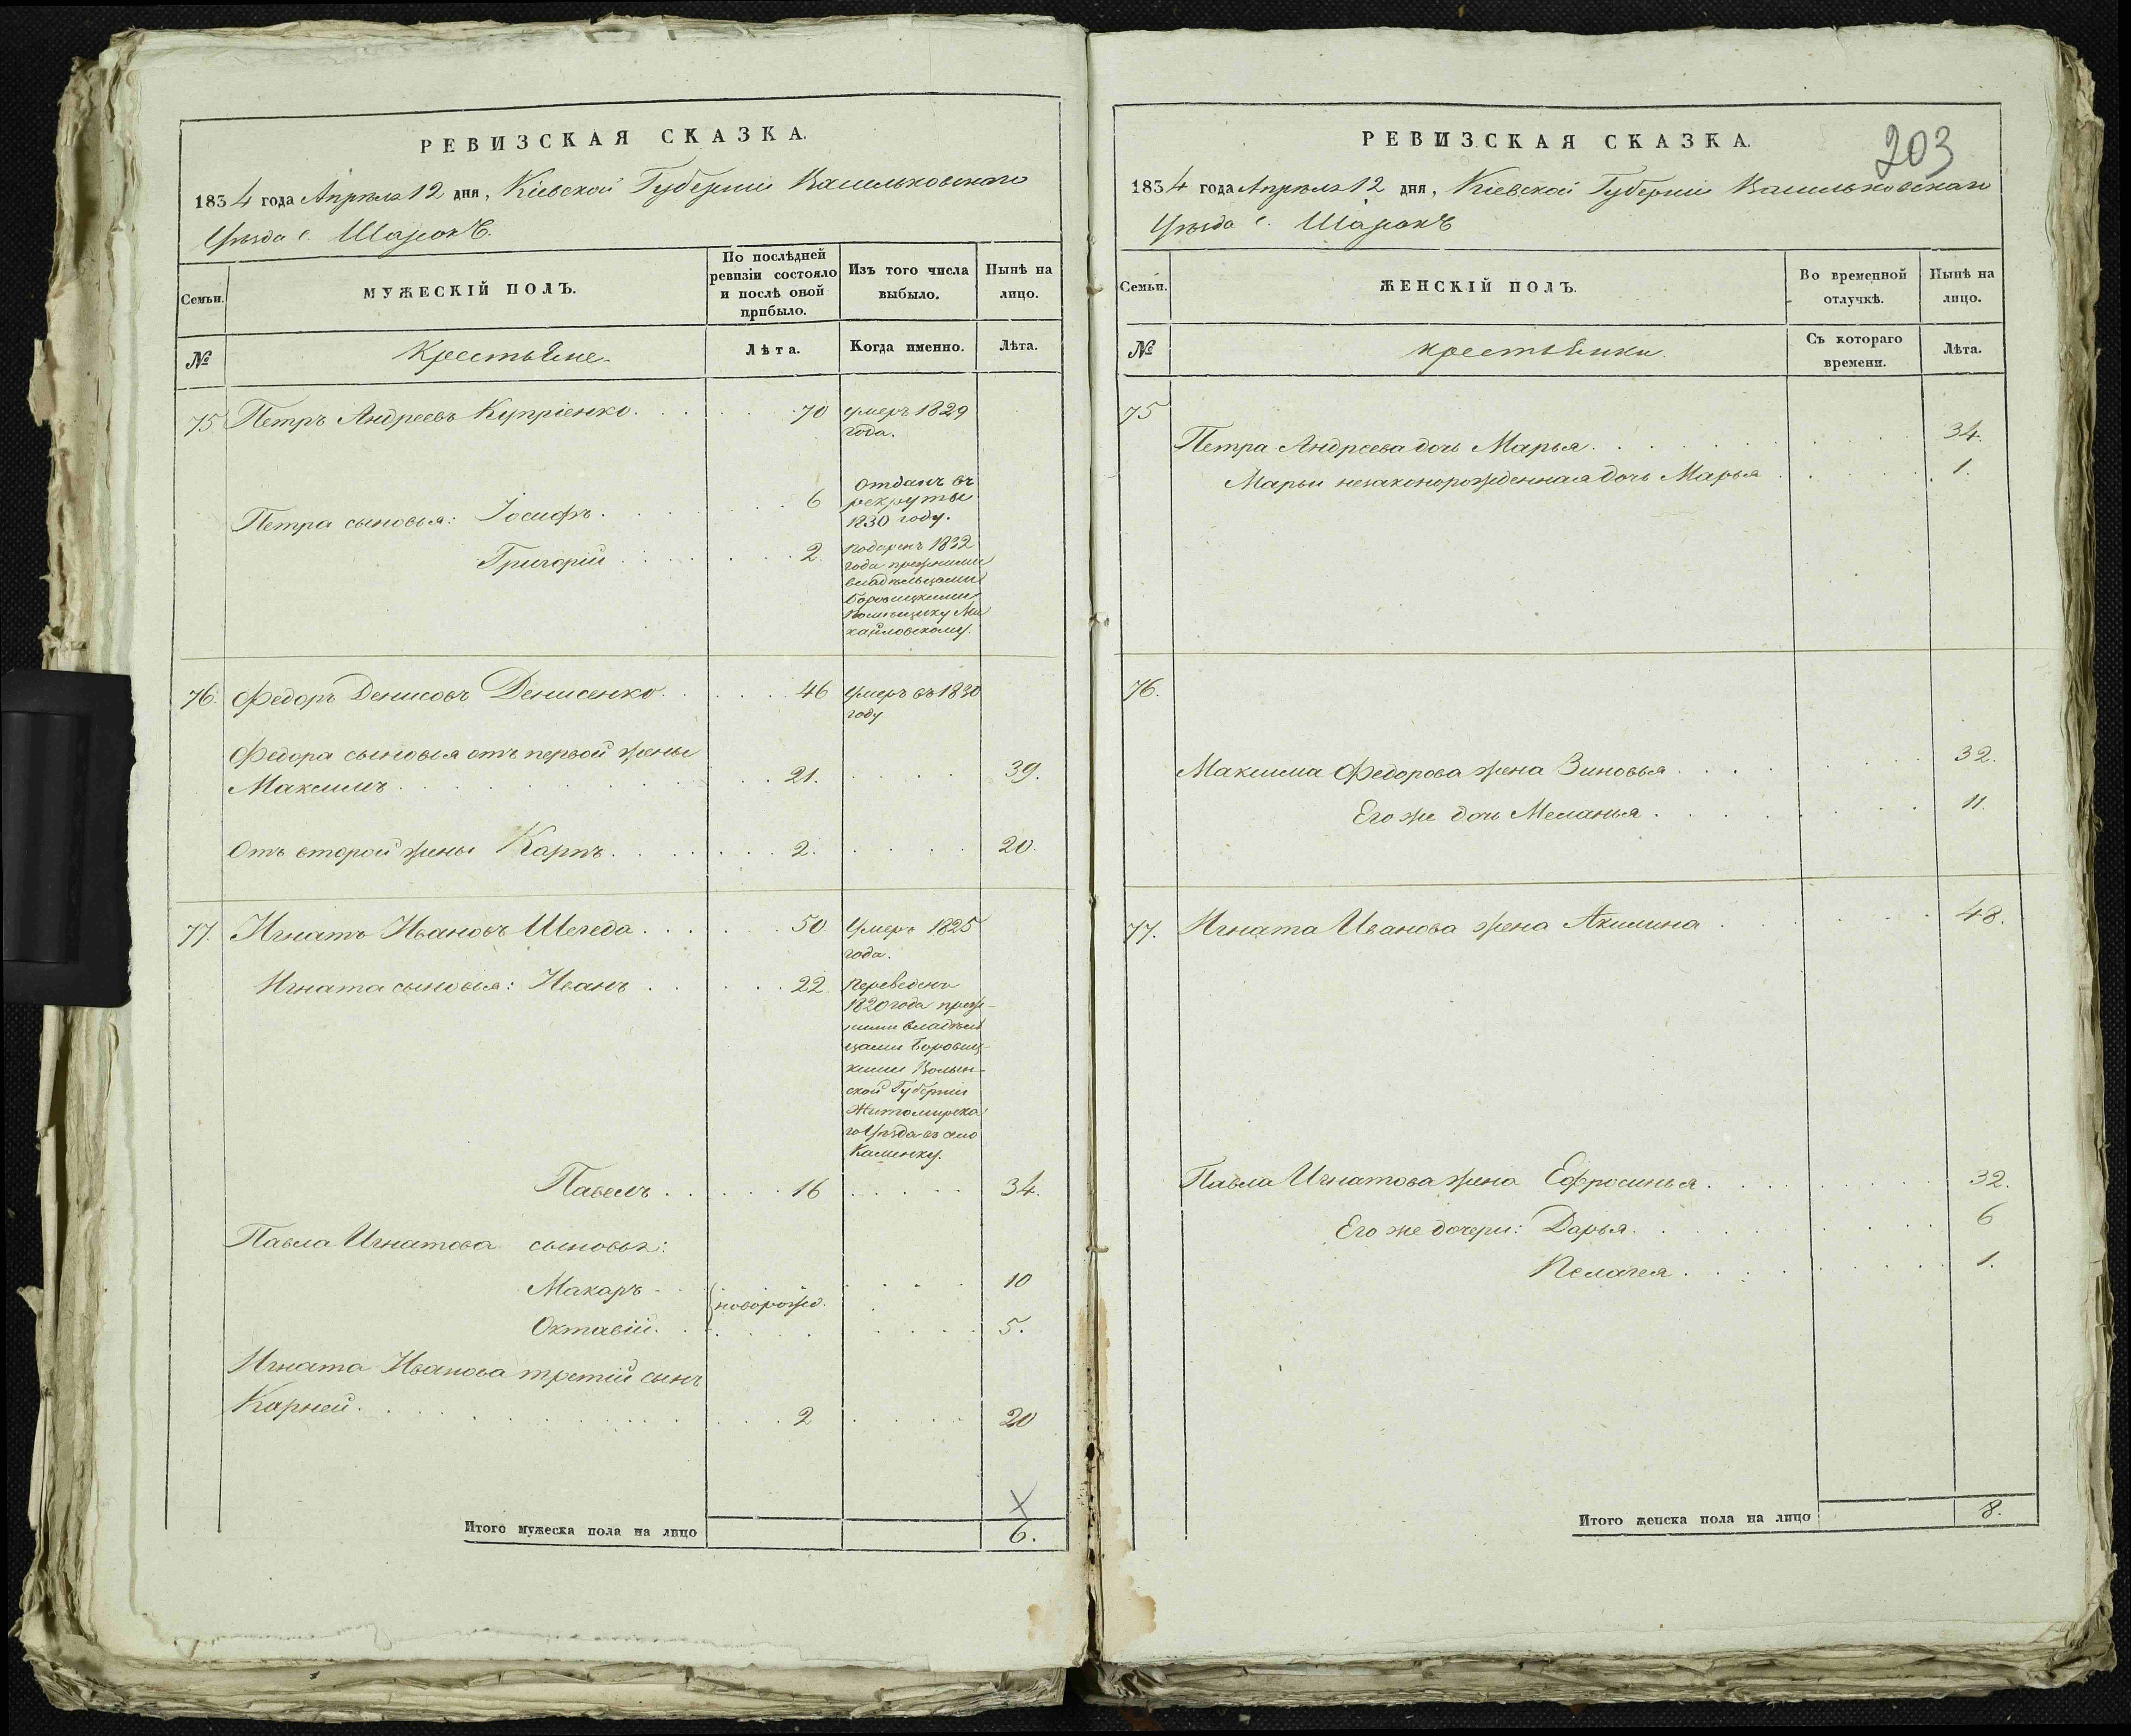 РЕВИЗСКАЯ СКАЗКА.
1834 года Апрѣля 12 дня, Кіевской Губерніи Васильковскаго
Уѣзда с.
Семьи.
МУЖЕСКІЙ ПОЛЪ.
По послѣдней ревизіи состояло и послѣ оной прибыло.
Изъ того числа выбыло.
Нынѣ на лицо.
№
Крестьяне
Лѣта.
Когда именно.
Лѣта.
75 Петръ Андреевъ Купріенко. 70 умеръ 1829
года.
Петра сыновья: Іосифъ. 6 отданъ въ
рекруты
1830 году.
Григорій 2. подаренъ 1832
года прежними
владѣльцами
Боровицкими
Помѣщику Ми
хайловскому.
76. Федоръ Денисовъ Денисенко. 46 Умеръ въ 1830
году
Федора сыновья отъ первой жены
Максимъ. 21. 39.
Отъ второй жены Карпъ. 2. 20.
77. Игнатъ Ивановъ Шегеда. 50. Умеръ 1825
года.
Игната сыновья: Иванъ 22 Переведенъ
1820 года преж-
ними владѣль
цами Боровиц-
кими Волын-
ской Губерніи
Житомирска
го Уѣзда въ село
Каменку.
Павелъ. 16 34.
Павла Игнатова сыновья:
Макаръ - новорожд. 10
Октавій. 5.
Игната Иванова третій сынъ
Карней. 2 20
Итого мужеска пола на лицо 6.
203
РЕВИЗСКАЯ СКАЗКА.
1834 года Апрѣля 12 дня, Кіевской Губерніи Васильковскаго
Уѣзда с.
Семьи.
ЖЕНСКІЙ ПОЛЪ.
Во временной отлучкѣ.
Нынѣ на лицо.
№
крестьянки.
Съ котораго времени.
Лѣта.
75
Петра Андреева дочь Марья. 34.
Марьи незаконорожденная дочь Марья 1.
76.
Максима Федорова жена Зиновья 32.
Его же дочь Меланья. 11.
77. Игната Иванова жена Акилина 48.
Павла Игнатова жена Ефросинья. 32.
Его же дочери: Дарья. 6
Пелагея. 1.
Итого женска пола на лицо 8.